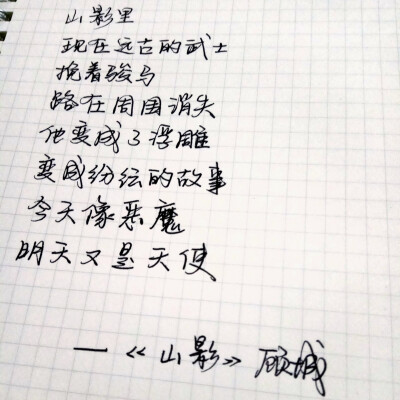 山影里
现在远古的武士
挽着骏马
路在周围消失
他变成了浮雕
变成纷纭的故事
今天像恶魔
明天又是天使
—《山影》顾城